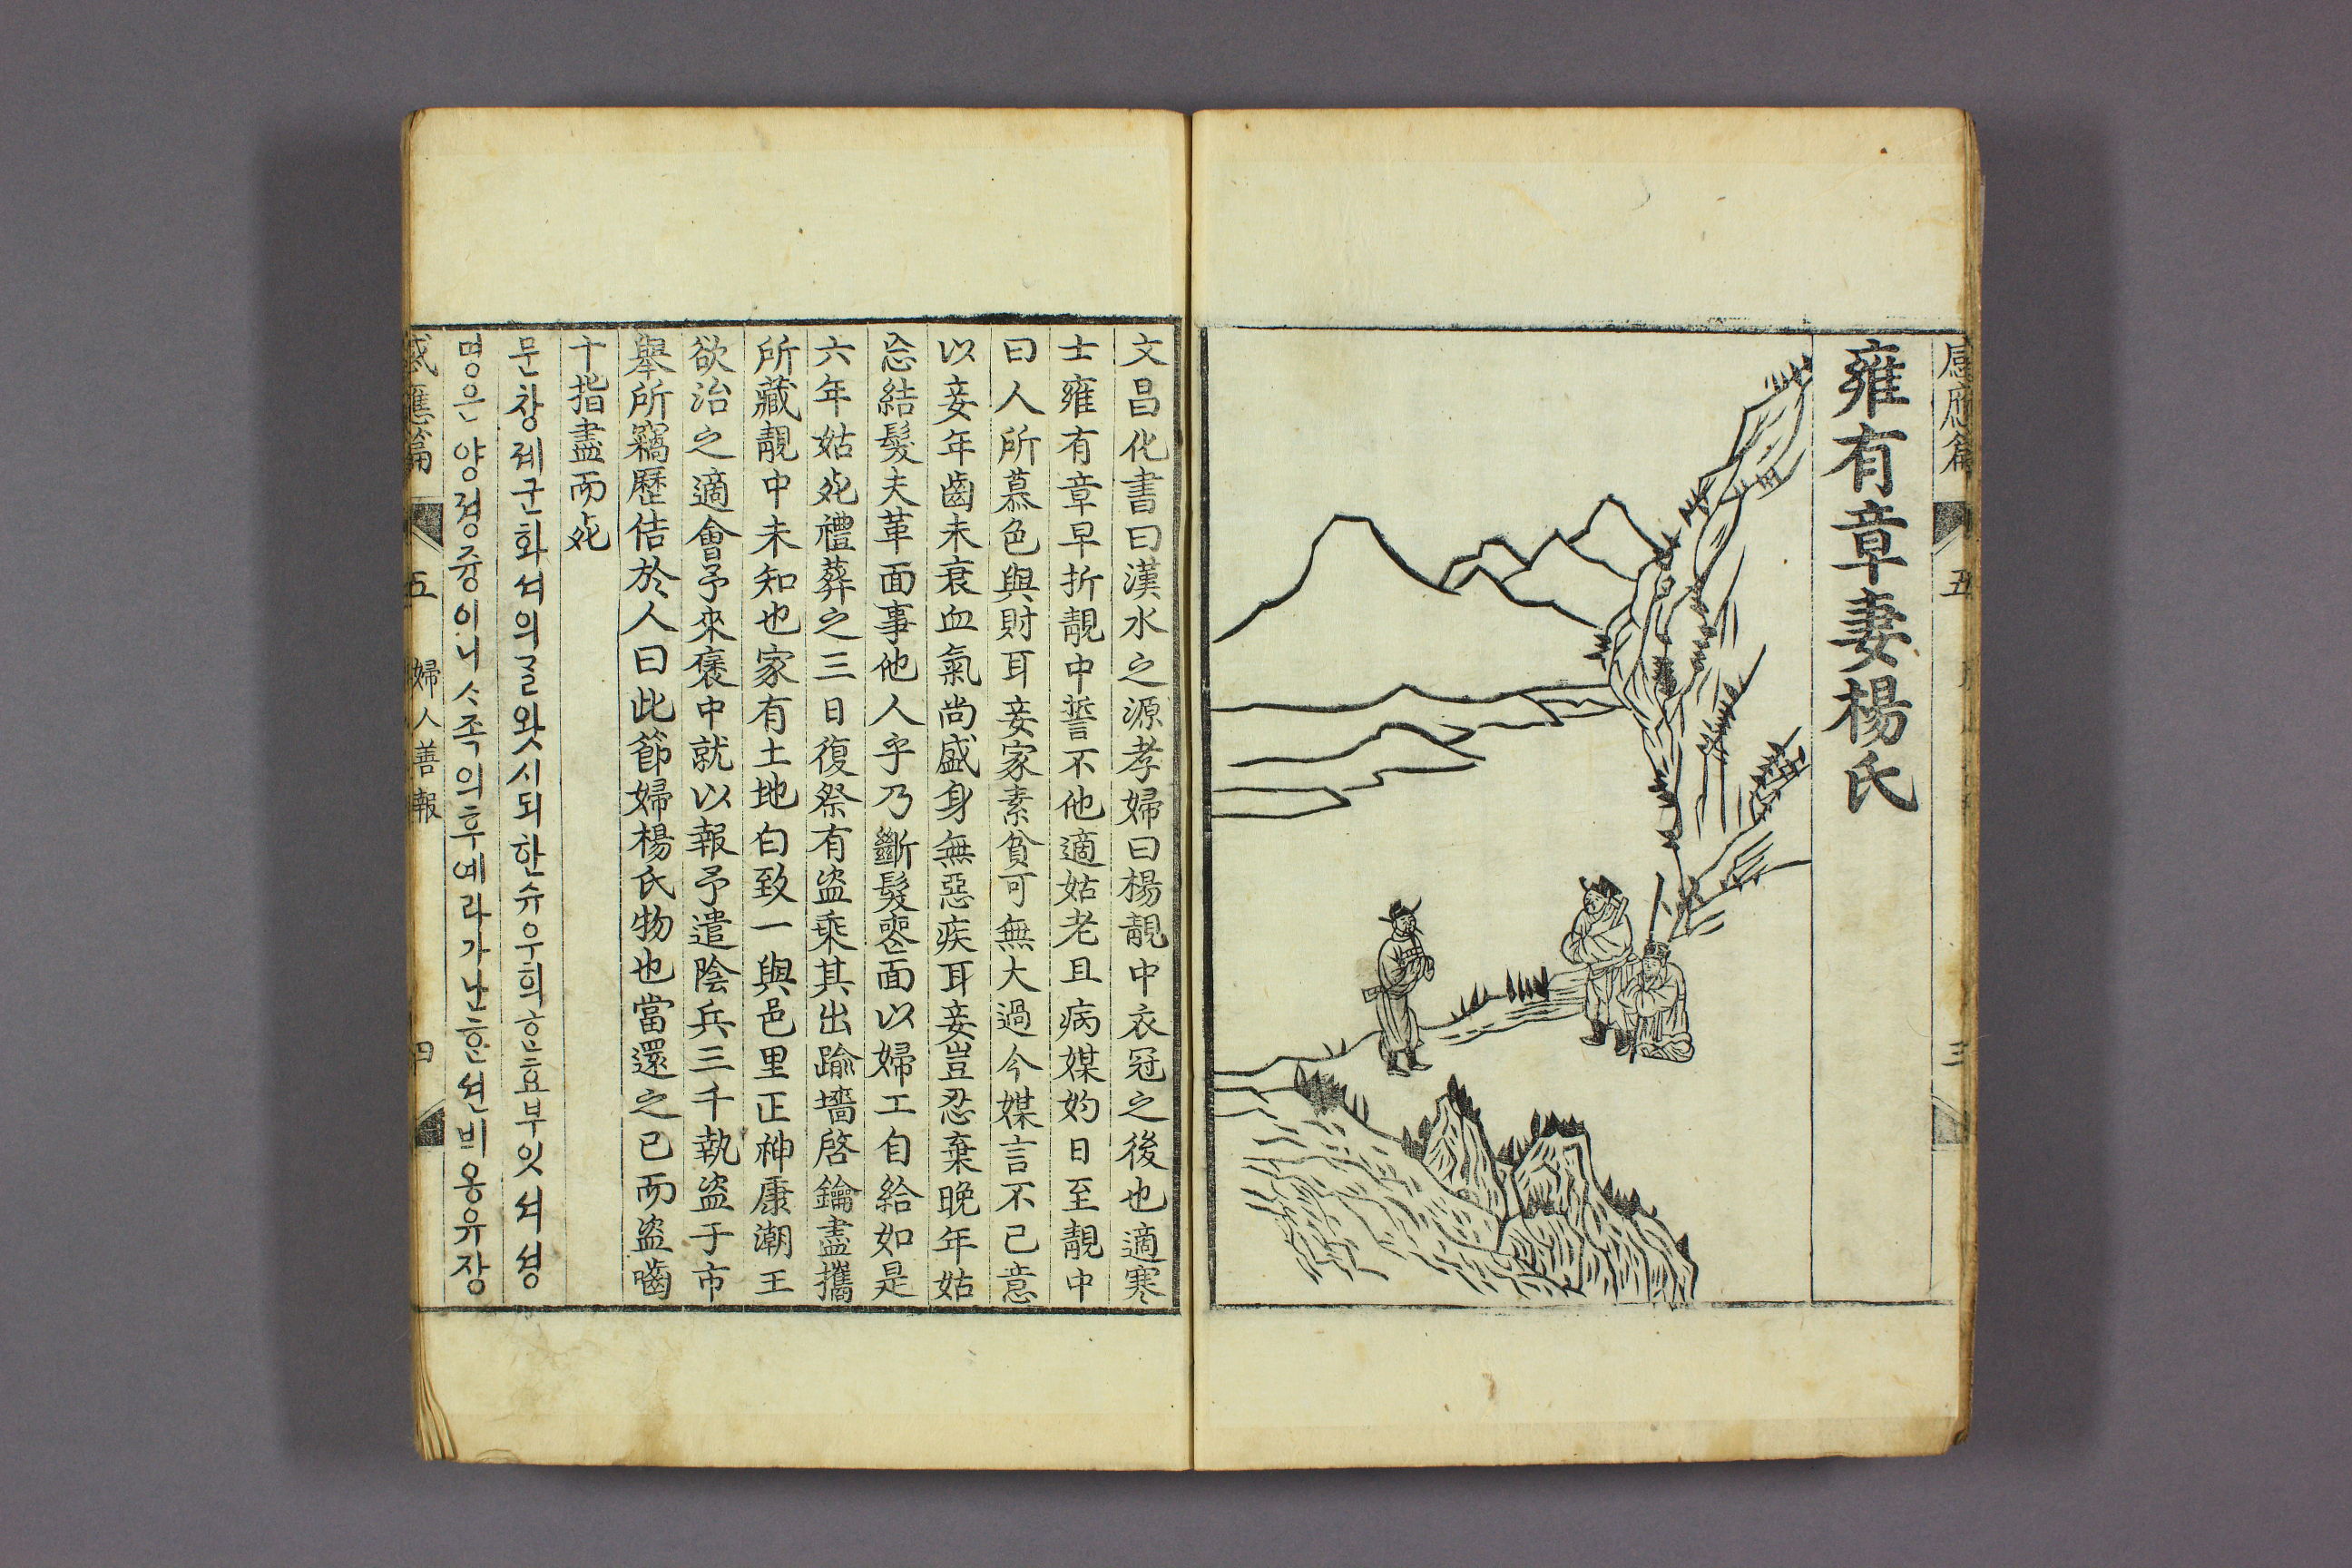 感應篇 五 三
雍有章妻楊氏
文昌化書曰漢水之源孝婦曰楊靚中衣冠之後也適寒
士雍有章早折靚中誓不他適姑老且病媒妁日至靚中
曰人所慕色與財耳妾家素貧可無大過今媒言不已意
以妾年齒未衰血氣尚盛身無惡疾耳妾豈忍棄晩年姑
忘結髮夫革面事他人乎乃斷髮面以婦工自給如是
六年姑死禮葬之三日復祭有盜乘其出踰墻啓鑰盡攜
所藏靚中未知也家有土地白致一與邑里正神康潮王
欲治之適會予來褒中就以報予遣陰兵三千執盜于市
舉所竊歷佶於人曰此節婦楊氏物也當還之已而盜嚙
十指盡而死
문창뎨군화셔의 글왓시되 한슈우희 ᄒᆞᆫ 효부잇셔 셩
명은 양졍즁이니 ᄉᆞ족의 후예라 가난ᄒᆞᆫ 션븨 옹유쟝
感應篇 五 婦人善報 四